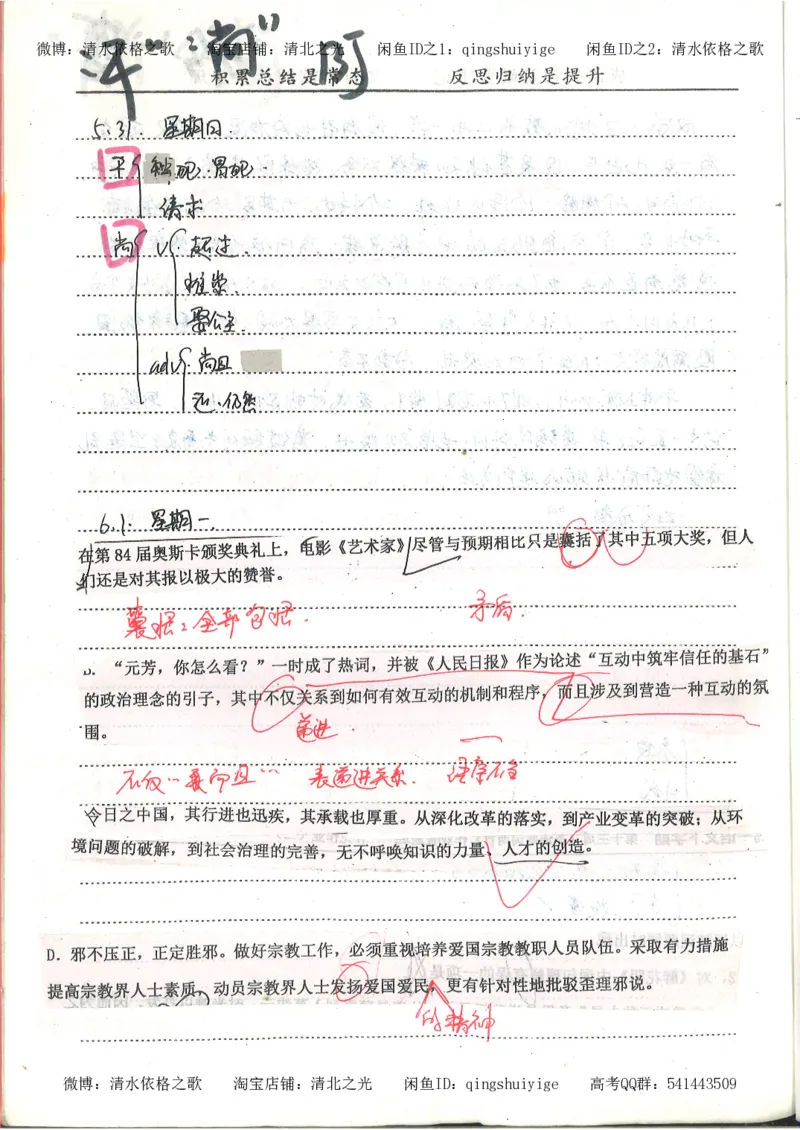 微博：清水依格之歌 淘宝店铺：清北之光 闲鱼ID之1：qingshuiyige 闲鱼ID之2：清水依格之歌
汗“：尚”
积累总结是常态 反思归纳是提升
5.31. 星期日.
冒犯.
请求
尚 v 超过.
推崇.
娶公主.
adv. 尚且
还.仍然
6.1. 星期一.
在第 84 届奥斯卡颁奖典礼上，电影《艺术家》尽管与预期相比只是囊括了其中五项大奖，但人
们还是对其报以极大的赞誉。
囊括：全部包括. 矛盾.
B．“元芳，你怎么看？”一时成了热词，并被《人民日报》作为论述“互动中筑牢信任的基石”
的政治理念的引子，其中不仅关系到如何有效互动的机制和程序，而且涉及到营造一种互动的氛
围。
递进.
不仅…而且… 表递进关系. 语序不当
今日之中国，其行进也迅疾，其承载也厚重。从深化改革的落实，到产业变革的突破；从环
境问题的破解，到社会治理的完善，无不呼唤知识的力量、人才的创造。
D．邪不压正，正定胜邪。做好宗教工作，必须重视培养爱国宗教教职人员队伍。采取有力措施
提高宗教界人士素质，动员宗教界人士发扬爱国爱民，更有针对性地批驳歪理邪说。
的精神
微博：清水依格之歌 淘宝店铺：清北之光 闲鱼ID：qingshuiyige 高考QQ群：541443509